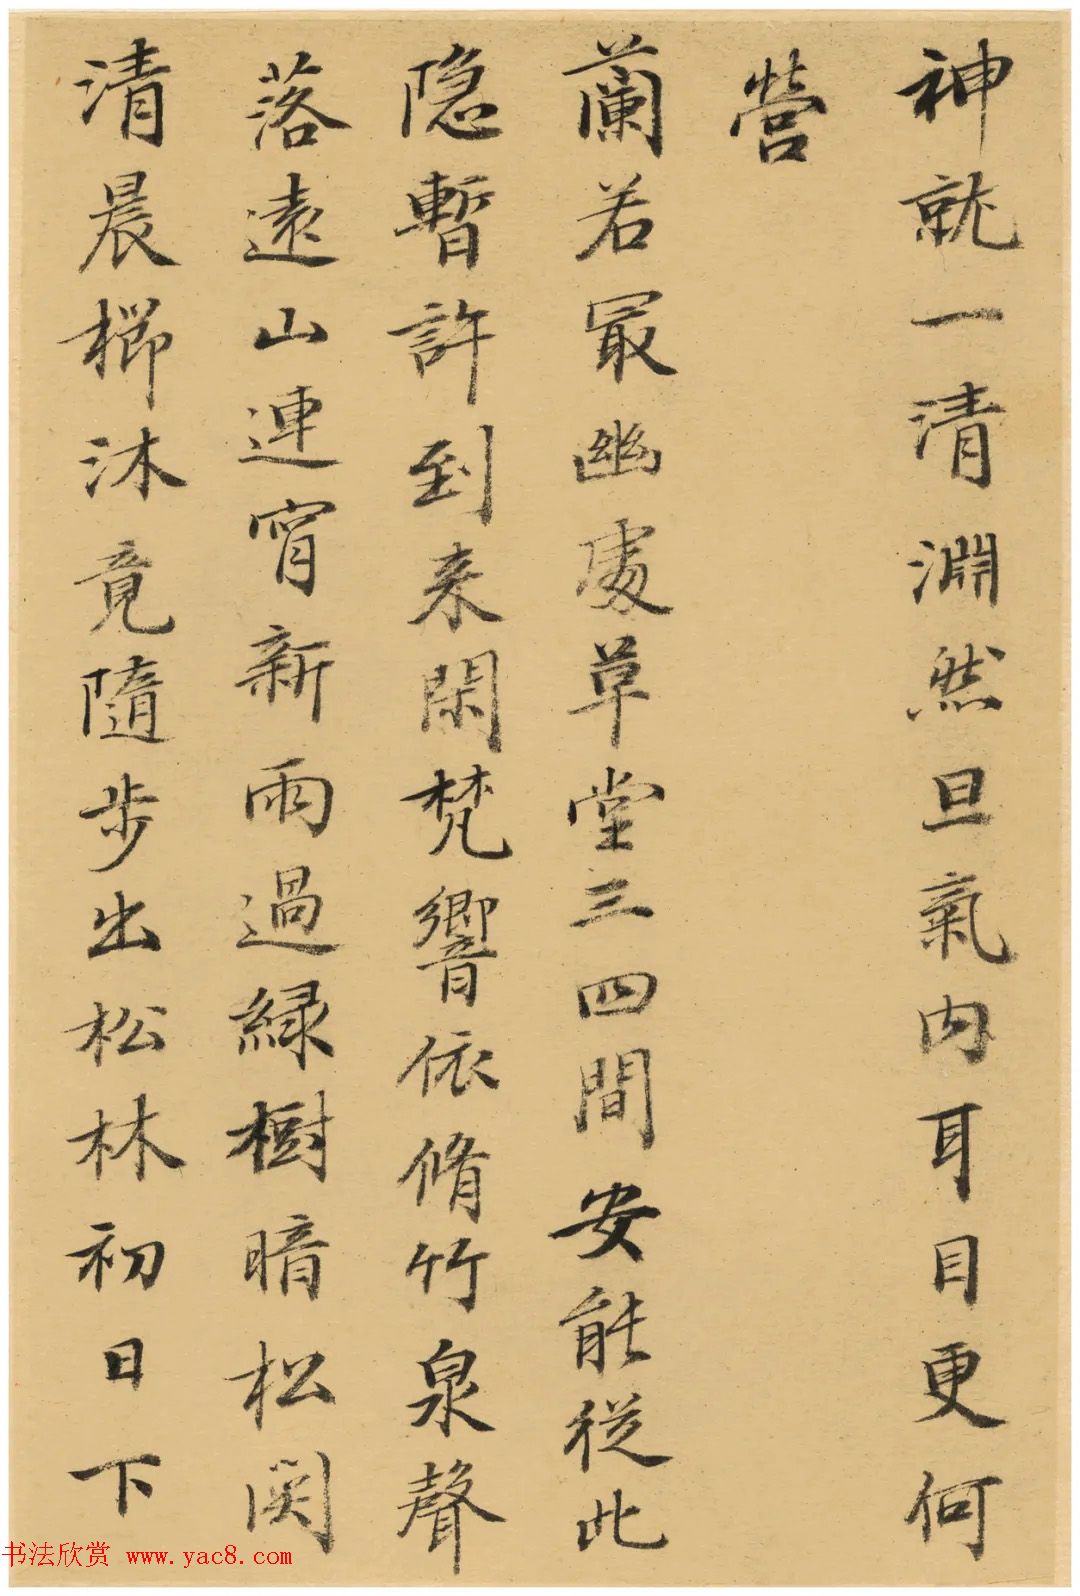 神就一清淵然旦氣内耳目更何
營
蘭若冣幽處草堂三四間安能從此
隐暫許到来閑梵響依脩竹泉聲
落遠山連宵新雨過緑樹暗松関
清晨櫛沐竟隨步出松林初日下
书法欣赏 www.yac8.com